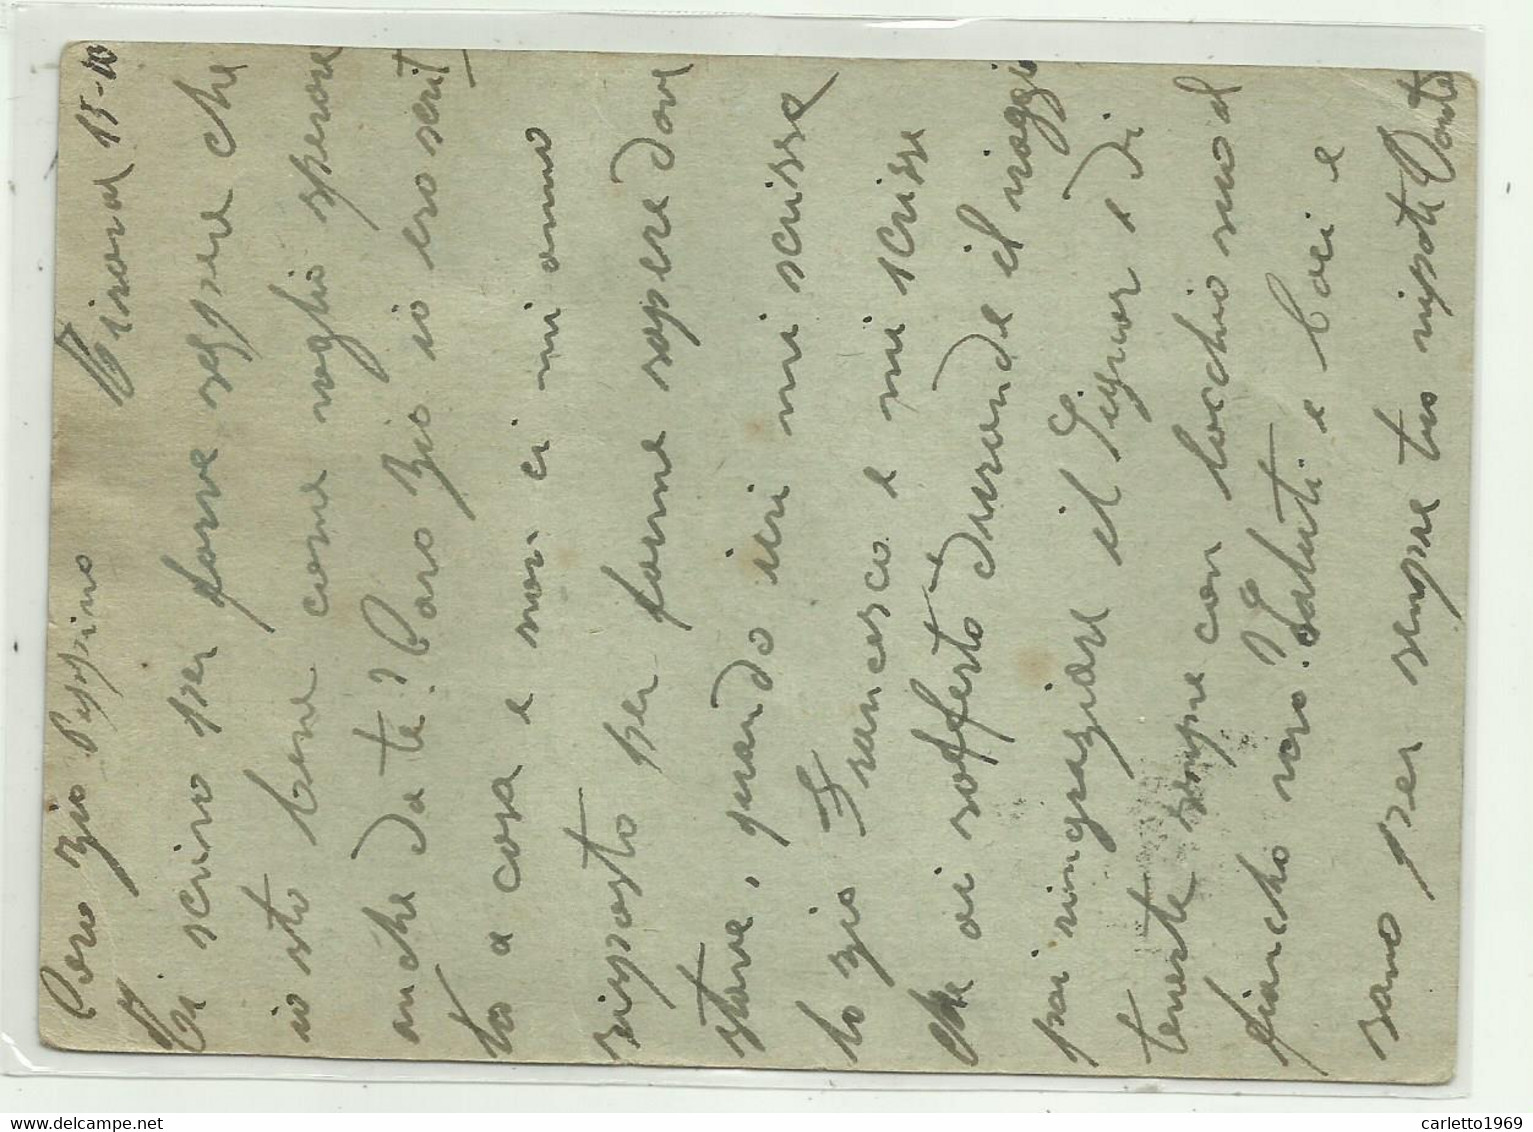 Caro zio Peppino
Tirana 15-10
Ti scrivo per farve sappere che
io sto bene come voglio sperare
anche da te? Caro zio io ero scrit
to a casa e non ci mi anno
risposto per farme sapere dove
stave, quando ieri mi scrisse
lo zio Francesco e mi scrisse
che ai sofferto durande il viaggio
poi ringraziare il Signor e di
teneste sempre con locchio suo al
fiancho Saluti e baci e
sano per sempre tuo nipote
carletto1969